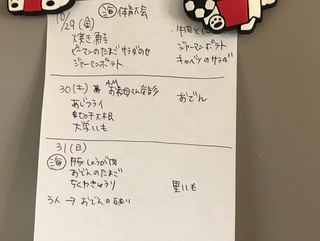 10/29(金) 海 体育大会
焼き魚
ピーマンのたまごサラダのせ
ジャーマンポテト
ジャーマンポテト
キャベツのサラダ
30(土) お母さん
おでん
あじフライ
切干大根
大学いも
31(日)
海 豚しょうが肉
おでんのたまご
ちくわきゅうり
里いも
3人→おでんの残り